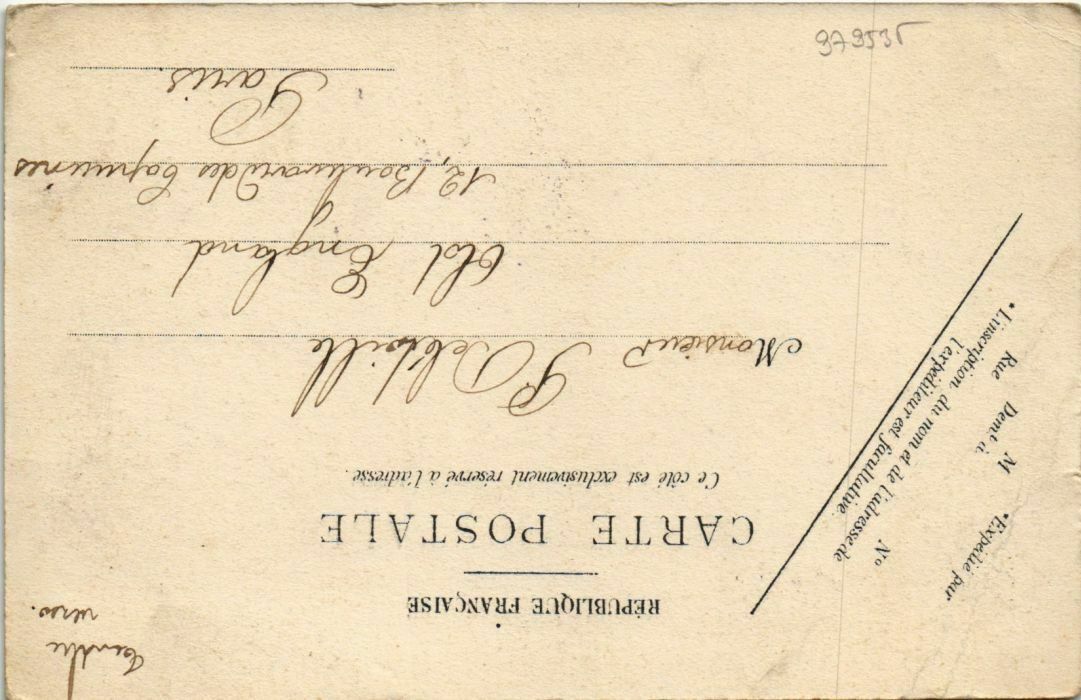 RÉPUBLIQUE FRANÇAISE
CARTE POSTALE
Ce côté est exclusivement réservé à l'adresse.
Monsieur P Delville
Old England
12, Boulevard des Capucines
Paris.
*Expédié par
M
Demt à
Rue
No
*L'inscription du nom et de l'adresse de
l'expéditeur est facultative.
verso.